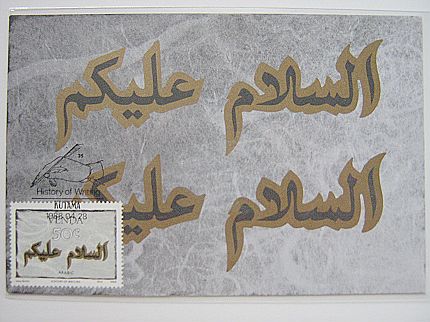 السلام عليكم
السلام عليكم
35
History of Writing
KUTAMA
1988.04.28
VENDA
50c
السلام عليكم
ARABIC
HISTORY OF WRITING